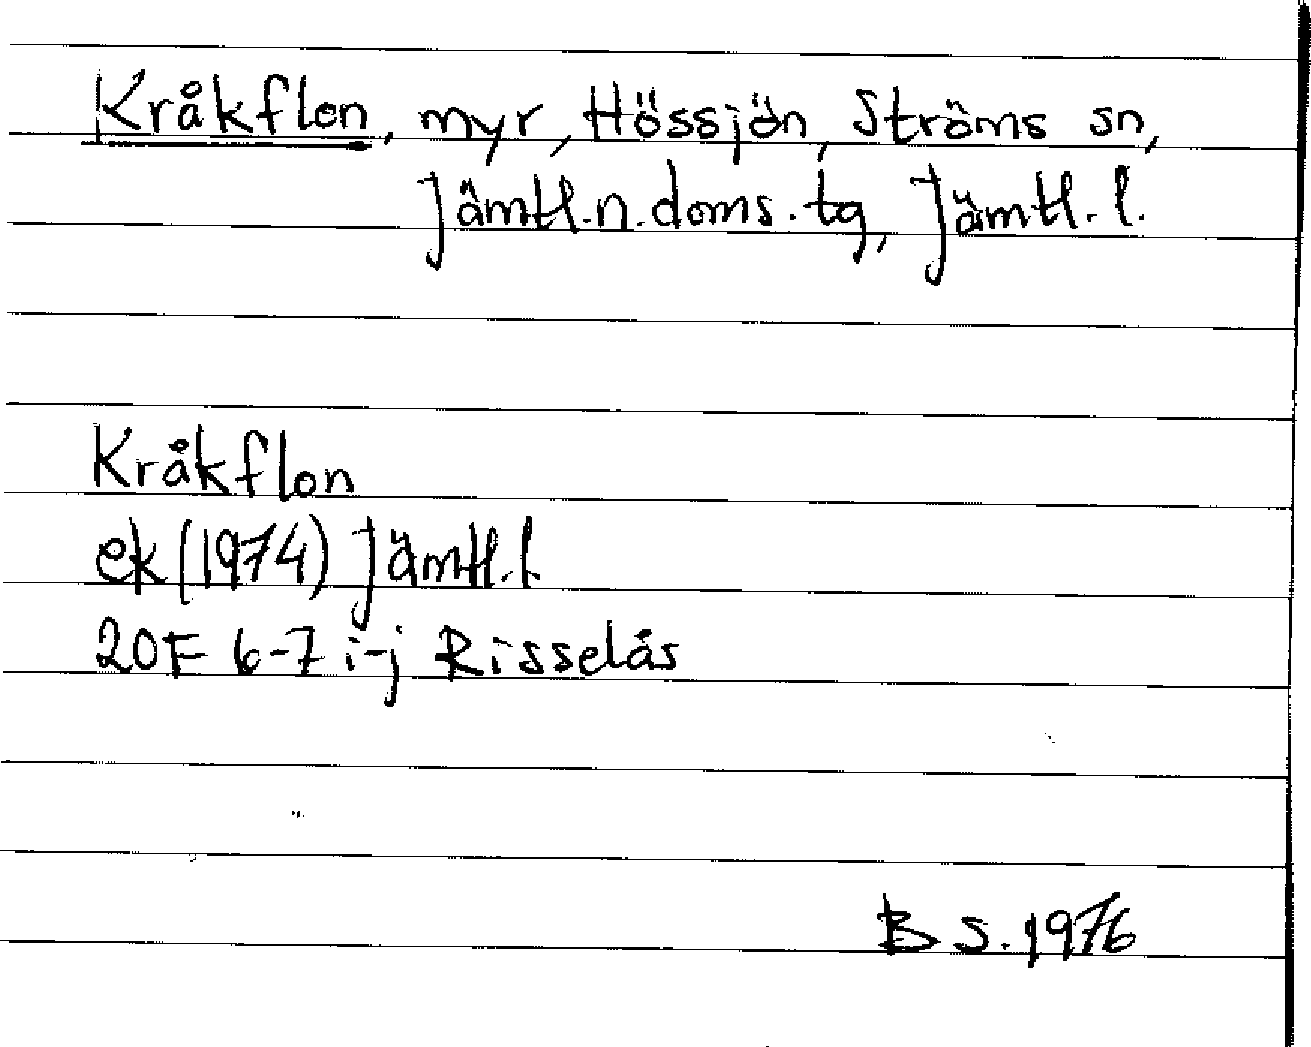 Kråkflon, myr, Hössjön, Ströms sn,
Jämtl.n.doms.tg, Jämtl.l.
Kråkflon
ek (1974) Jämtl.l.
20F 6-7 i-j Risselås
B S. 1976